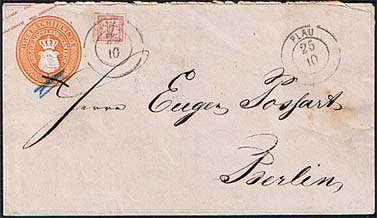 DREI SCHILLINGE
PLAU
25
10
25
10
Herrn Eugen Possart
Berlin